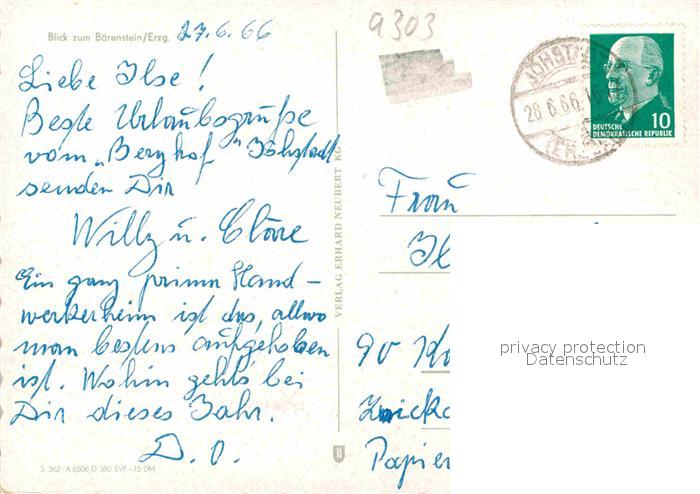 Blick zum Bärenstein/Erzg. 27.6.66
Liebe Ilse!
Beste Urlaubsgrüße
vom "Berghof" Jöhstadt
senden Dir
Willy u. Cläre
Ein ganz prima Hand-
werkerheim ist das, allwo
man bestens aufgehoben
ist. Wohin gehts bei
Dir dieses Jahr.
D. O.
S 362/A 6506 D 380 EVP -,15 DM
VERLAG ERHARD NEUBERT KG
9303
28.6.66
DEUTSCHE
DEMOKRATISCHE REPUBLIK
10
Frau
Il
90 Ka
Zwicka
Papier
privacy protection
Datenschutz